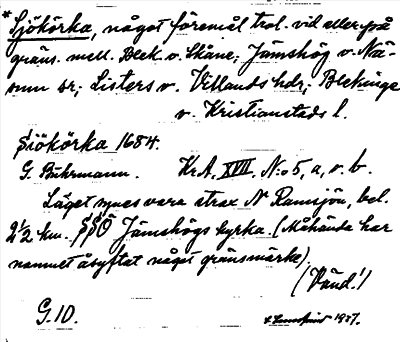 * Sjökörka, något föremål trol. vid eller på
gräns. mell. Blek. o. Skåne; Jämshög o. Nä-
sum sr; Listers o. Villands hdr; Blekinge
o. Kristianstads l.
Siökörka 1684.
G. Buhrmann. KrA. XVII, N:o 5, a, o. b.
Läget synes vara strax N Ramsjön, bel.
2½ km. SSÖ Jämshögs kyrka. (Måhända har
namnet åsyftat något gränsmärke).
(Vänd!)
G.10. 1937.